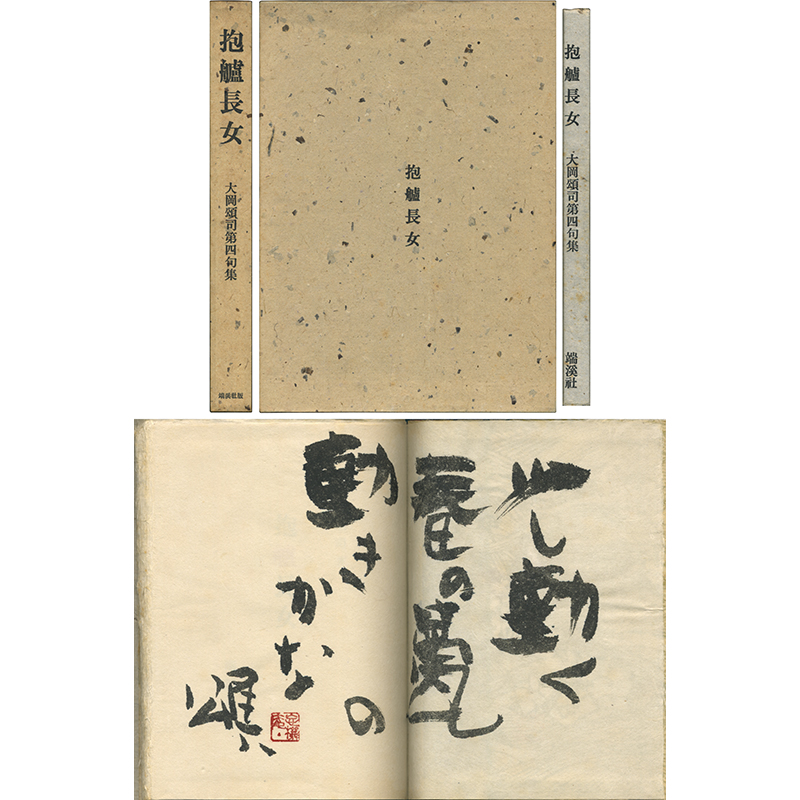 抱艫長女
大岡頌司第四句集
端渓社版
抱艫長女
抱艫長女
大岡頌司第四句集
端溪社
少し動く
春の甍の
動きかな
頌